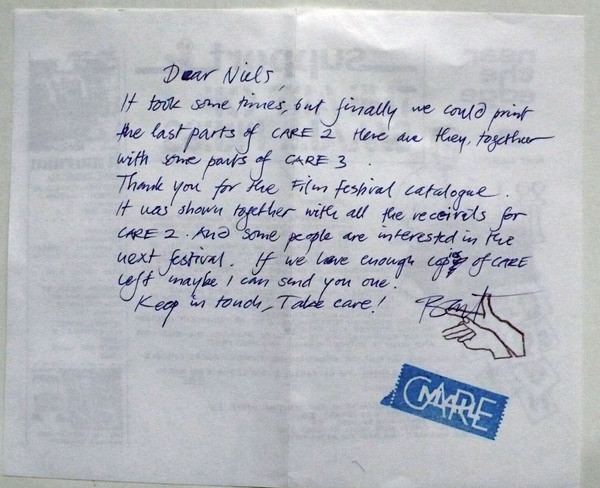 Dear Niels,
It took some times, but finally we could print
the last parts of CARE 2 Here are they, together
with some parts of CARE 3.
Thank you for the Film Festival catalogue.
It was shown together with all the receivals for
CARE 2. And some people are interested in the
next festival. If we have enough copies of CARE
left maybe I can send you one.
Keep in touch, Take care!
support